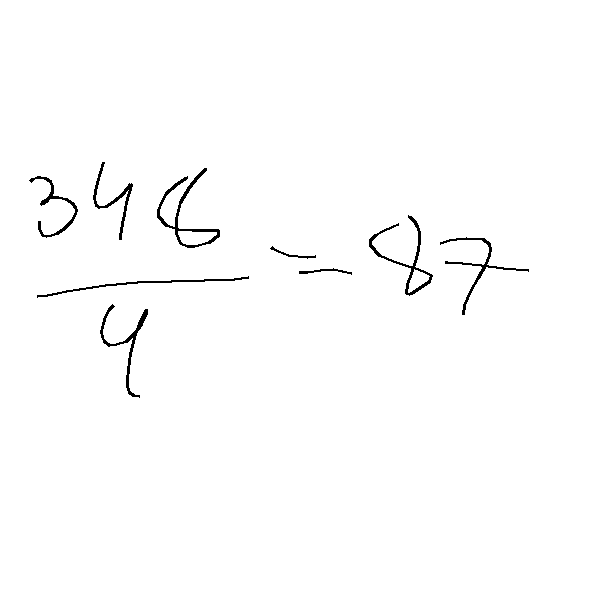 348
4
= 87